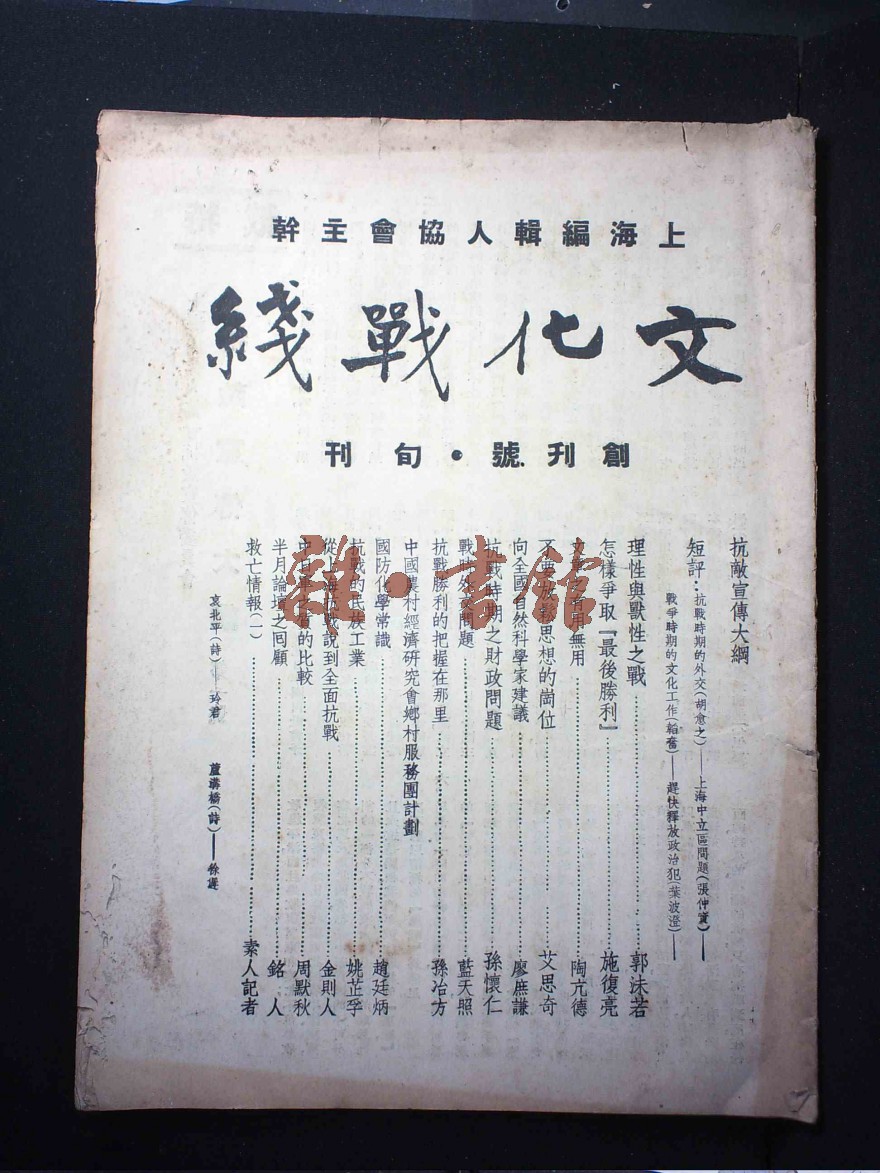 上海編輯人協會主幹
文化戰綫
創刊號·旬刊
抗敵宣傳大綱
短評：抗戰時期的外交（胡愈之）——上海中立區問題（張仲實）——
戰爭時期的文化工作（韜奮）——趕快釋放政治犯（葉波澄）——
理性與獸性之戰……郭沫若
怎樣爭取『最後勝利』……施復亮
有用無用……陶亢德
不要放棄思想的崗位……艾思奇
向全國自然科學家建議……廖庶謙
抗戰時期之財政問題……孫懷仁
戰時外交問題……藍天照
抗戰勝利的把握在那里……孫冶方
中國農村經濟研究會鄉村服務團計劃
國防化學常識……趙廷炳
抗戰的民族工業……姚芷孚
從上海抗戰說到全面抗戰……金則人
中日軍之的比較……周默秋
半月論壇之囘顧……銘人
救亡情報（一）……素人記者
哀北平（詩）——玲君 蘆溝橋（詩）——徐遲
雜·書館